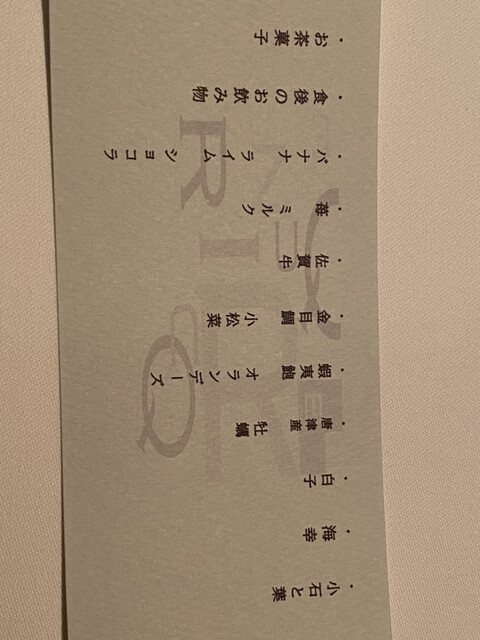 ・小石と葉
・海幸
・白子
・唐津産 牡蠣
・蝦夷鮑 オランデーズ
・金目鯛 小松菜
・佐賀牛
・苺 ミルク
・バナナ ライム ショコラ
・食後のお飲み物
・お茶菓子